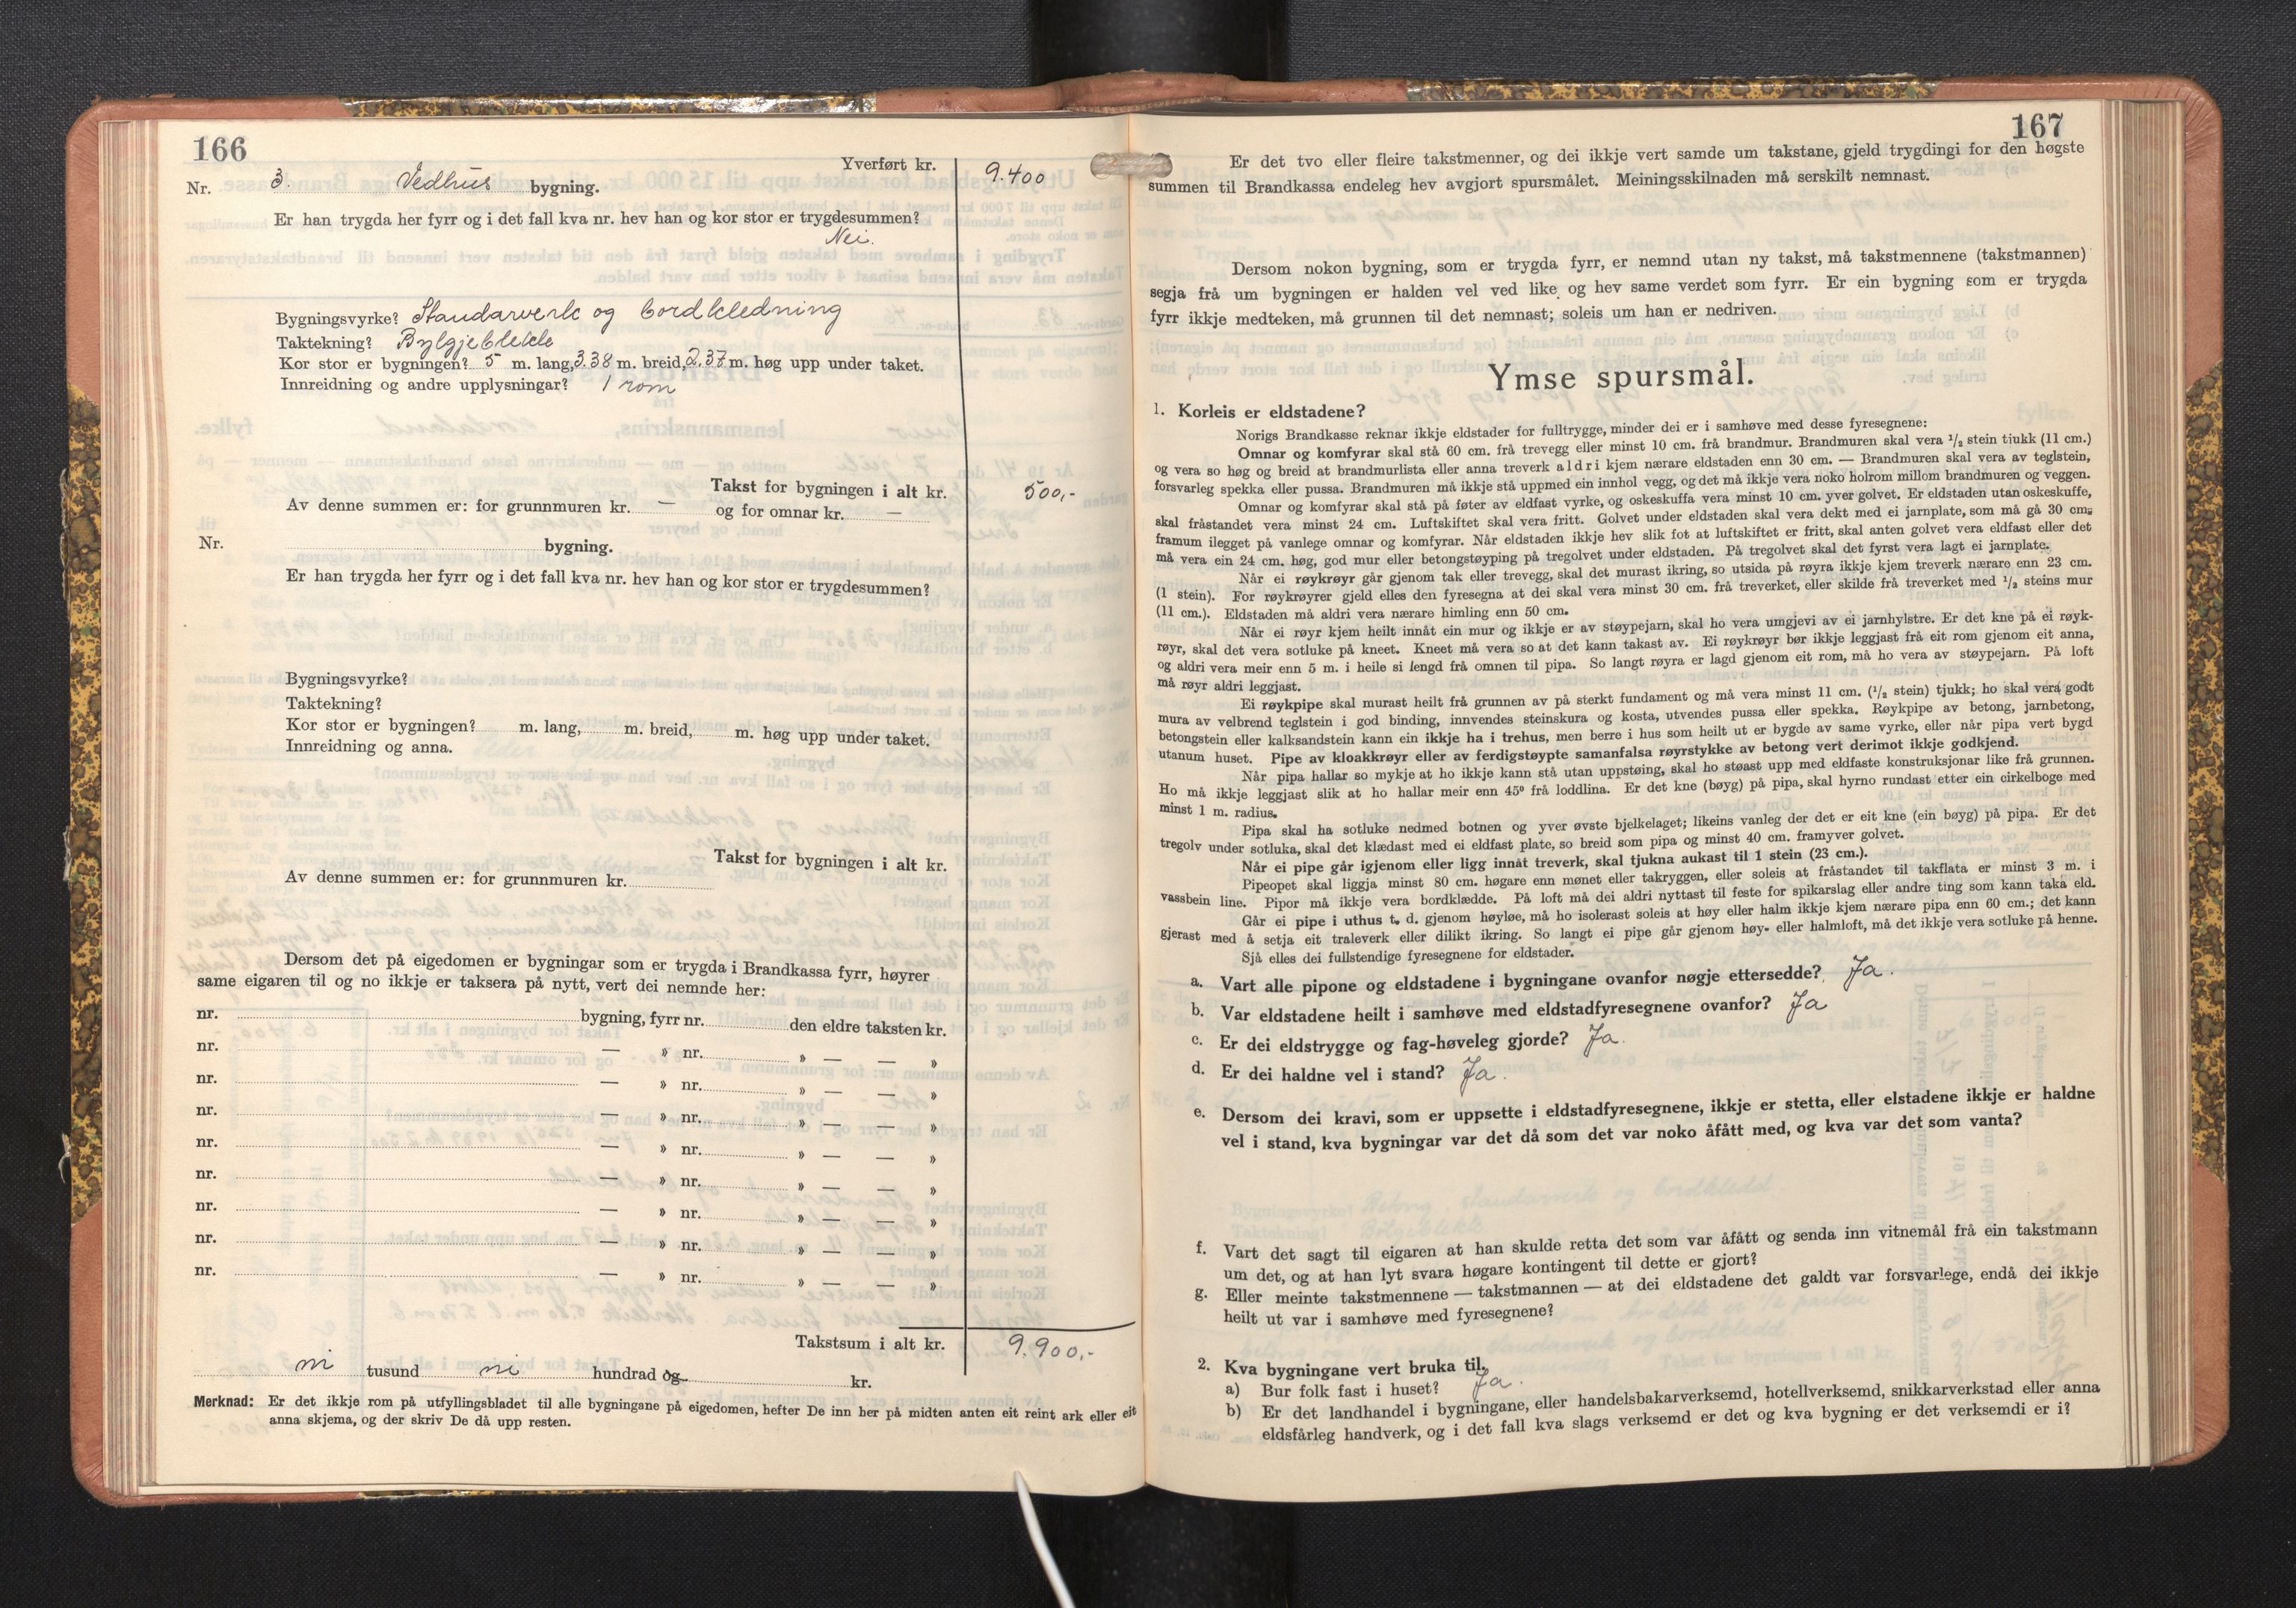 166
Yverført kr. 9.400
Nr. 3. Vedhus bygning.
Er han trygda her fyrr og i det fall kva nr. hev han og kor stor er trygdesummen?
Nei.
Bygningsvyrke? Standarverk og bordkledning
Taktekning? Bylgjeblekk
Kor stor er bygningen? 5 m. lang, 3.38 m. breid, 2.37 m. høg upp under taket.
Innreidning og andre upplysningar? 1 rom
Takst for bygningen i alt kr. 500,-
Av denne summen er: for grunnmuren kr. — og for omnar kr. —
Nr. bygning.
Er han trygda her fyrr og i det fall kva nr. hev han og kor stor er trygdesummen?
Bygningsvyrke?
Taktekning?
Kor stor er bygningen? m. lang, m. breid, m. høg upp under taket.
Innreidning og anna.
Takst for bygningen i alt kr.
Av denne summen er: for grunnmuren kr.
Dersom det på eigedomen er bygningar som er trygda i Brandkassa fyrr, høyrer
same eigaren til og no ikkje er taksera på nytt, vert dei nemnde her:
nr. bygning, fyrr nr. den eldre taksten kr.
nr. — » nr. » — — »
nr. — » nr. » — — »
nr. — » nr. » — — »
nr. — » nr. » — — »
nr. — » nr. » — — »
nr. — » nr. » — — »
nr. — » nr. » — — »
nr. — » nr. » — — »
Takstsum i alt kr. 9.900,-
ni tusund ni hundrad og kr.
Merknad: Er det ikkje rom på utfyllingsbladet til alle bygningane på eigedomen, hefter De inn her på midten anten eit reint ark eller eit
anna skjema, og der skriv De då upp resten.
167
Er det tvo eller fleire takstmenner, og dei ikkje vert samde um takstane, gjeld trygdingi for den høgste
summen til Brandkassa endeleg hev avgjort spursmålet. Meiningsskilnaden må serskilt nemnast.
Dersom nokon bygning, som er trygda fyrr, er nemnd utan ny takst, må takstmennene (takstmannen)
segja frå um bygningen er halden vel ved like og hev same verdet som fyrr. Er ein bygning som er trygda
fyrr ikkje medteken, må grunnen til det nemnast; soleis um han er nedriven.
Ymse spursmål.
1. Korleis er eldstadene?
Norigs Brandkasse reknar ikkje eldstader for fulltrygge, minder dei er i samhøve med desse fyresegnene:
Omnar og komfyrar skal stå 60 cm. frå trevegg eller minst 10 cm. frå brandmur. Brandmuren skal vera ½ stein tjukk (11 cm.)
og vera so høg og breid at brandmurlista eller anna treverk aldri kjem nærare eldstaden enn 30 cm. — Brandmuren skal vera av teglstein,
forsvarleg spekka eller pussa. Brandmuren må ikkje stå uppmed ein innhol vegg, og det må ikkje vera noko holrom millom brandmuren og veggen.
Omnar og komfyrar skal stå på føter av eldfast vyrke, og oskeskuffa vera minst 10 cm. yver golvet. Er eldstaden utan oskeskuffe,
skal fråstandet vera minst 24 cm. Luftskiftet skal vera fritt. Golvet under eldstaden skal vera dekt med ei jarnplate, som må gå 30 cm.
framum ilegget på vanlege omnar og komfyrar. Når eldstaden ikkje hev slik fot at luftskiftet er fritt, skal anten golvet vera eldfast eller det
må vera ein 24 cm. høg, god mur eller betongstøyping på tregolvet under eldstaden. På tregolvet skal det fyrst vera lagt ei jarnplate.
Når ei røykrøyr går gjenom tak eller trevegg, skal det murast ikring, so utsida på røyra ikkje kjem treverk nærare enn 23 cm.
(1 stein). For røykrøyrer gjeld elles den fyresegna at dei skal vera minst 30 cm. frå treverket, eller skilde frå treverket med ½ steins mur
(11 cm.). Eldstaden må aldri vera nærare himling enn 50 cm.
Når ei røyr kjem heilt innåt ein mur og ikkje er av støypejarn, skal ho vera umgjevi av ei jarnhylstre. Er det kne på ei røyk-
røyr, skal det vera sotluke på kneet. Kneet må vera so at det kann takast av. Ei røykrøyr bør ikkje leggjast frå eit rom gjenom eit anna,
og aldri vera meir enn 5 m. i heile si lengd frå omnen til pipa. So langt røyra er lagd gjenom eit rom, må ho vera av støypejarn. På loft
må røyr aldri leggjast.
Ei røykpipe skal murast heilt frå grunnen av på sterkt fundament og må vera minst 11 cm. (½ stein) tjukk; ho skal vera godt
mura av velbrend teglstein i god binding, innvendes steinskura og kosta, utvendes pussa eller spekka. Røykpipe av betong, jarnbetong,
betongstein eller kalksandstein kann ein ikkje ha i trehus, men berre i hus som heilt ut er bygde av same vyrke, eller når pipa vert bygd
utanum huset. Pipe av kloakkrøyr eller av ferdigstøypte samanfalsa røyrstykke av betong vert derimot ikkje godkjend.
Når pipa hallar so mykje at ho ikkje kann stå utan uppstøing, skal ho støast upp med eldfaste konstruksjonar like frå grunnen.
Ho må ikkje leggjast slik at ho hallar meir enn 45° frå loddlina. Er det kne (bøyg) på pipa, skal hyrno rundast etter ein cirkelboge med
minst 1 m. radius.
Pipa skal ha sotluke nedmed botnen og yver øvste bjelkelaget; likeins vanleg der det er eit kne (ein bøyg) på pipa. Er det
tregolv under sotluka, skal det klædast med ei eldfast plate, so breid som pipa og minst 40 cm. framyver golvet.
Når ei pipe går igjenom eller ligg innåt treverk, skal tjukna aukast til 1 stein (23 cm.).
Pipeopet skal liggja minst 80 cm. høgare enn mønet eller takryggen, eller soleis at fråstandet til takflata er minst 3 m. i
vassbein line. Pipor må ikkje vera bordklædde. På loft må dei aldri nyttast til feste for spikarslag eller andre ting som kann taka eld.
Går ei pipe i uthus t. d. gjenom høyløe, må ho isolerast soleis at høy eller halm ikkje kjem nærare pipa enn 60 cm.; det kann
gjerast med å setja eit traleverk eller dilikt ikring. So langt ei pipe går gjenom høy- eller halmloft, må det ikkje vera sotluke på henne.
Sjå elles dei fullstendige fyresegnene for eldstader.
a. Vart alle pipone og eldstadene i bygningane ovanfor nøgje ettersedde? Ja.
b. Var eldstadene heilt i samhøve med eldstadfyresegnene ovanfor? Ja
c. Er dei eldstrygge og fag-høveleg gjorde? Ja.
d. Er dei haldne vel i stand? Ja.
e. Dersom dei kravi, som er uppsette i eldstadfyresegnene, ikkje er stetta, eller elstadene ikkje er haldne
vel i stand, kva bygningar var det då som det var noko åfått med, og kva var det som vanta?
f. Vart det sagt til eigaren at han skulde retta det som var åfått og senda inn vitnemål frå ein takstmann
um det, og at han lyt svara høgare kontingent til dette er gjort?
g. Eller meinte takstmennene — takstmannen — at dei eldstadene det galdt var forsvarlege, endå dei ikkje
heilt ut var i samhøve med fyresegnene?
2. Kva bygningane vert bruka til.
a) Bur folk fast i huset? Ja.
b) Er det landhandel i bygningane, eller handelsbakarverksemd, hotellverksemd, snikkarverkstad eller anna
eldsfårleg handverk, og i det fall kva slags verksemd er det og kva bygning er det verksemdi er i?